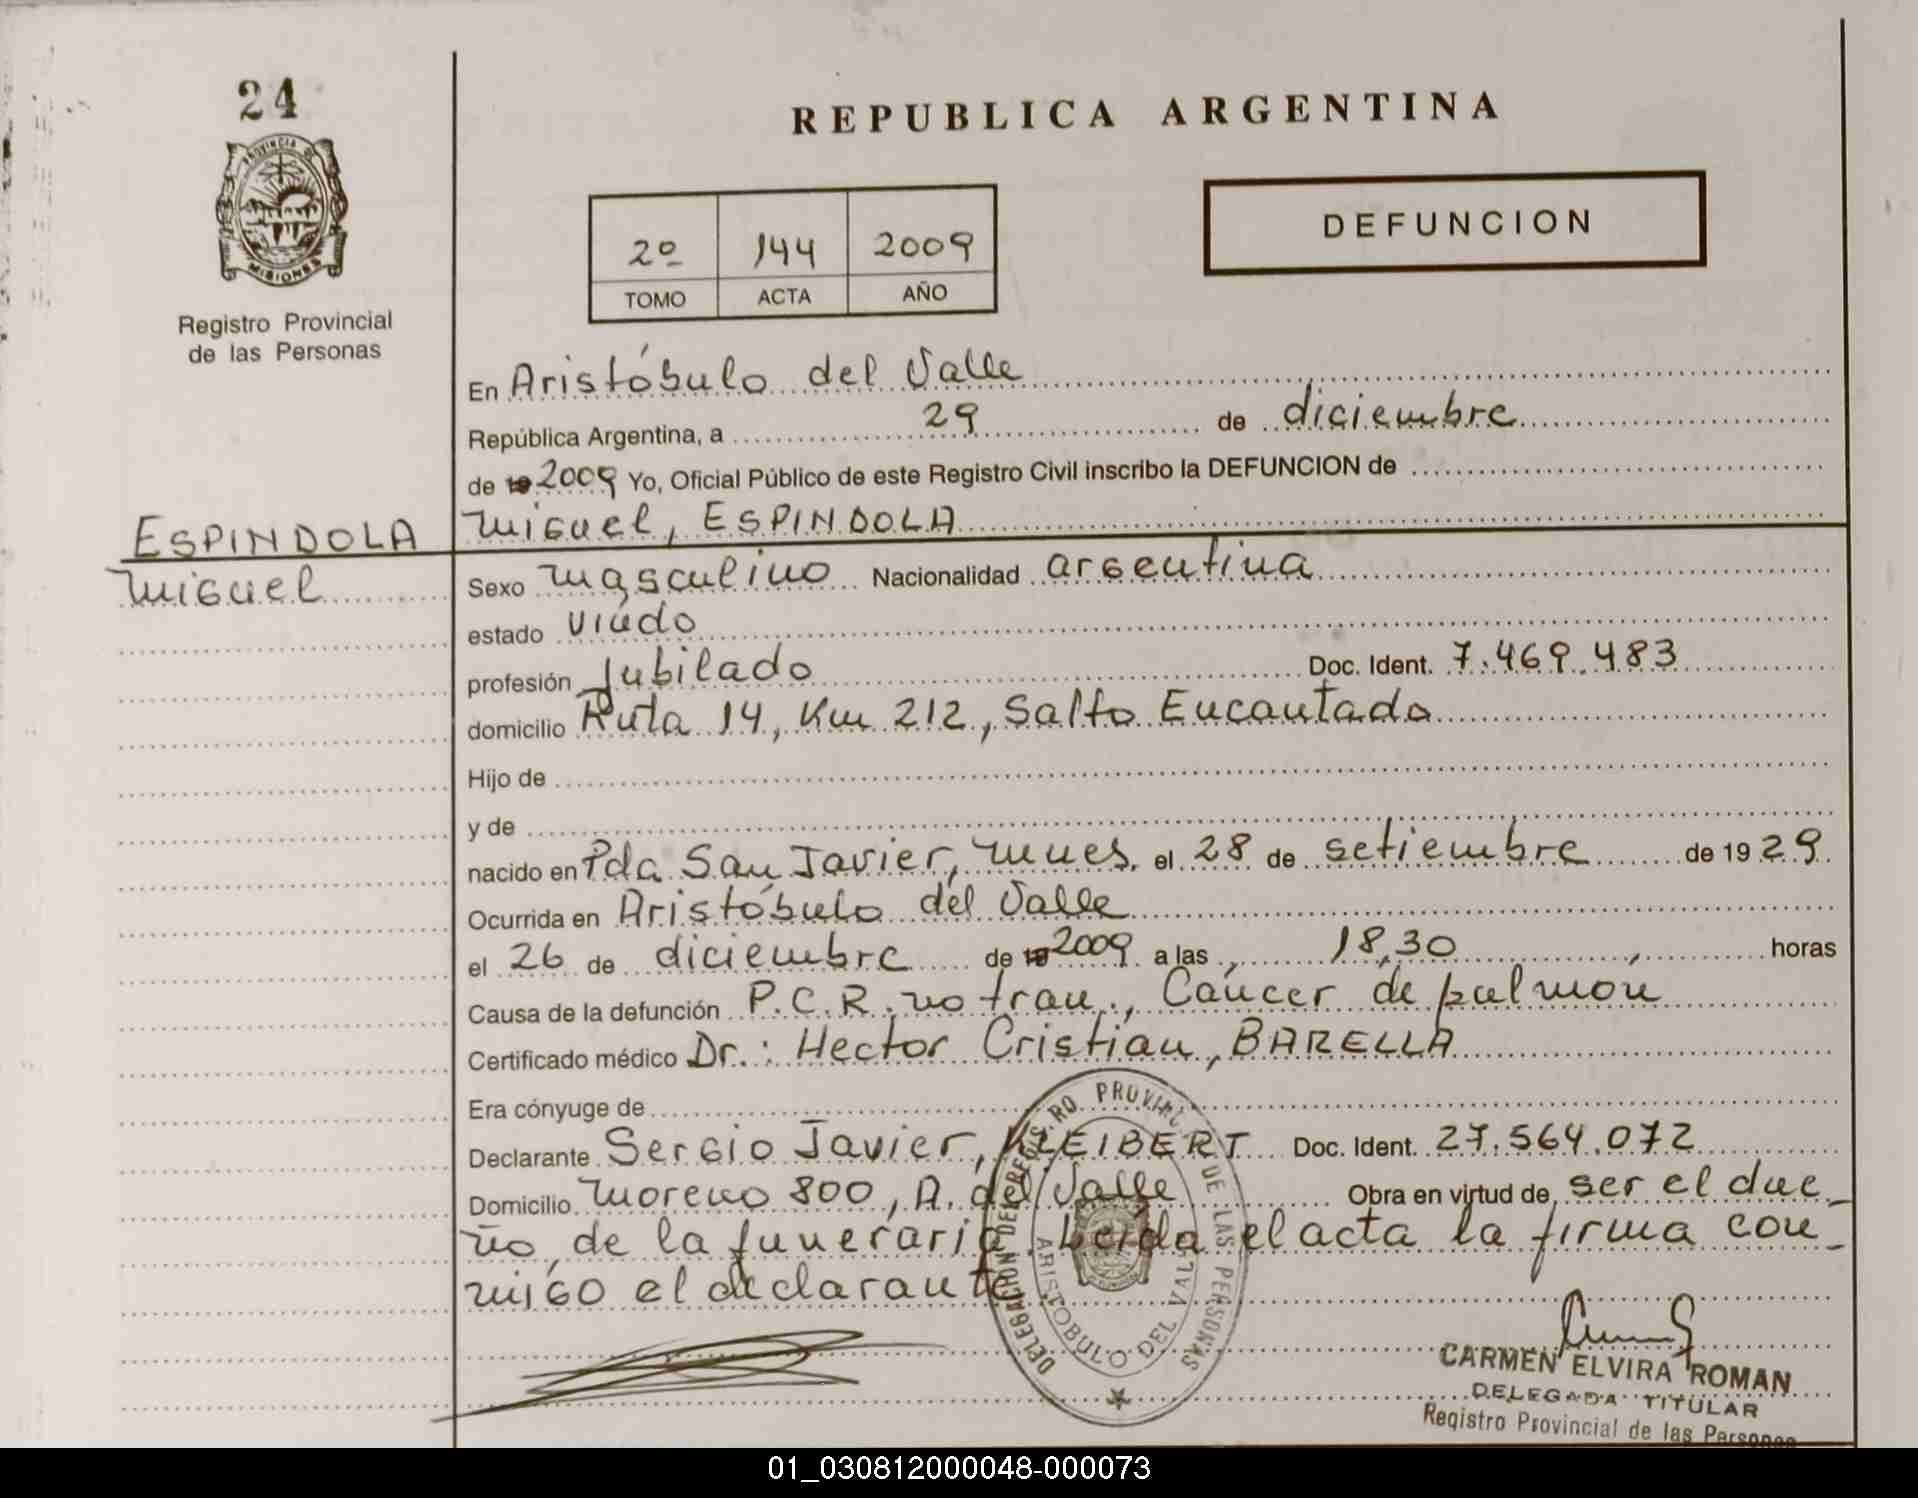 24
PROVINCIA DE
MISIONES
Registro Provincial
de las Personas
REPUBLICA ARGENTINA
2º 144 2009
TOMO ACTA AÑO
DEFUNCION
En Aristóbulo del Valle
República Argentina, a 29 de diciembre
de 19 2009 Yo, Oficial Público de este Registro Civil inscribo la DEFUNCION de
Miguel, ESPINDOLA
ESPINDOLA
Miguel
Sexo masculino Nacionalidad argentina
estado viudo
profesión Jubilado Doc. Ident. 7.469.483
domicilio Ruta 14, Km 212, Salto Encantado
Hijo de
y de
nacido en Pda San Javier, Mnes, el 28 de setiembre de 19 29
Ocurrida en Aristóbulo del Valle
el 26 de diciembre de 19 2009 a las 18,30 horas
Causa de la defunción P.C.R. no trau., Cáncer de pulmon
Certificado médico Dr.: Hector Cristian, BARELLA
Era cónyuge de
Declarante Sergio Javier, KLEIBERT Doc. Ident. 27.564.072
Domicilio Moreno 800, A. del Valle Obra en virtud de ser el due_
ño de la funeraria. Leída el acta la firma con_
migo el declarante
DELEGACION DEL REGISTRO PROVINCIAL DE LAS PERSONAS
ARISTOBULO DEL VALLE
CARMEN ELVIRA ROMAN
DELEGADA TITULAR
Registro Provincial de las Personas
01_030812000048-000073